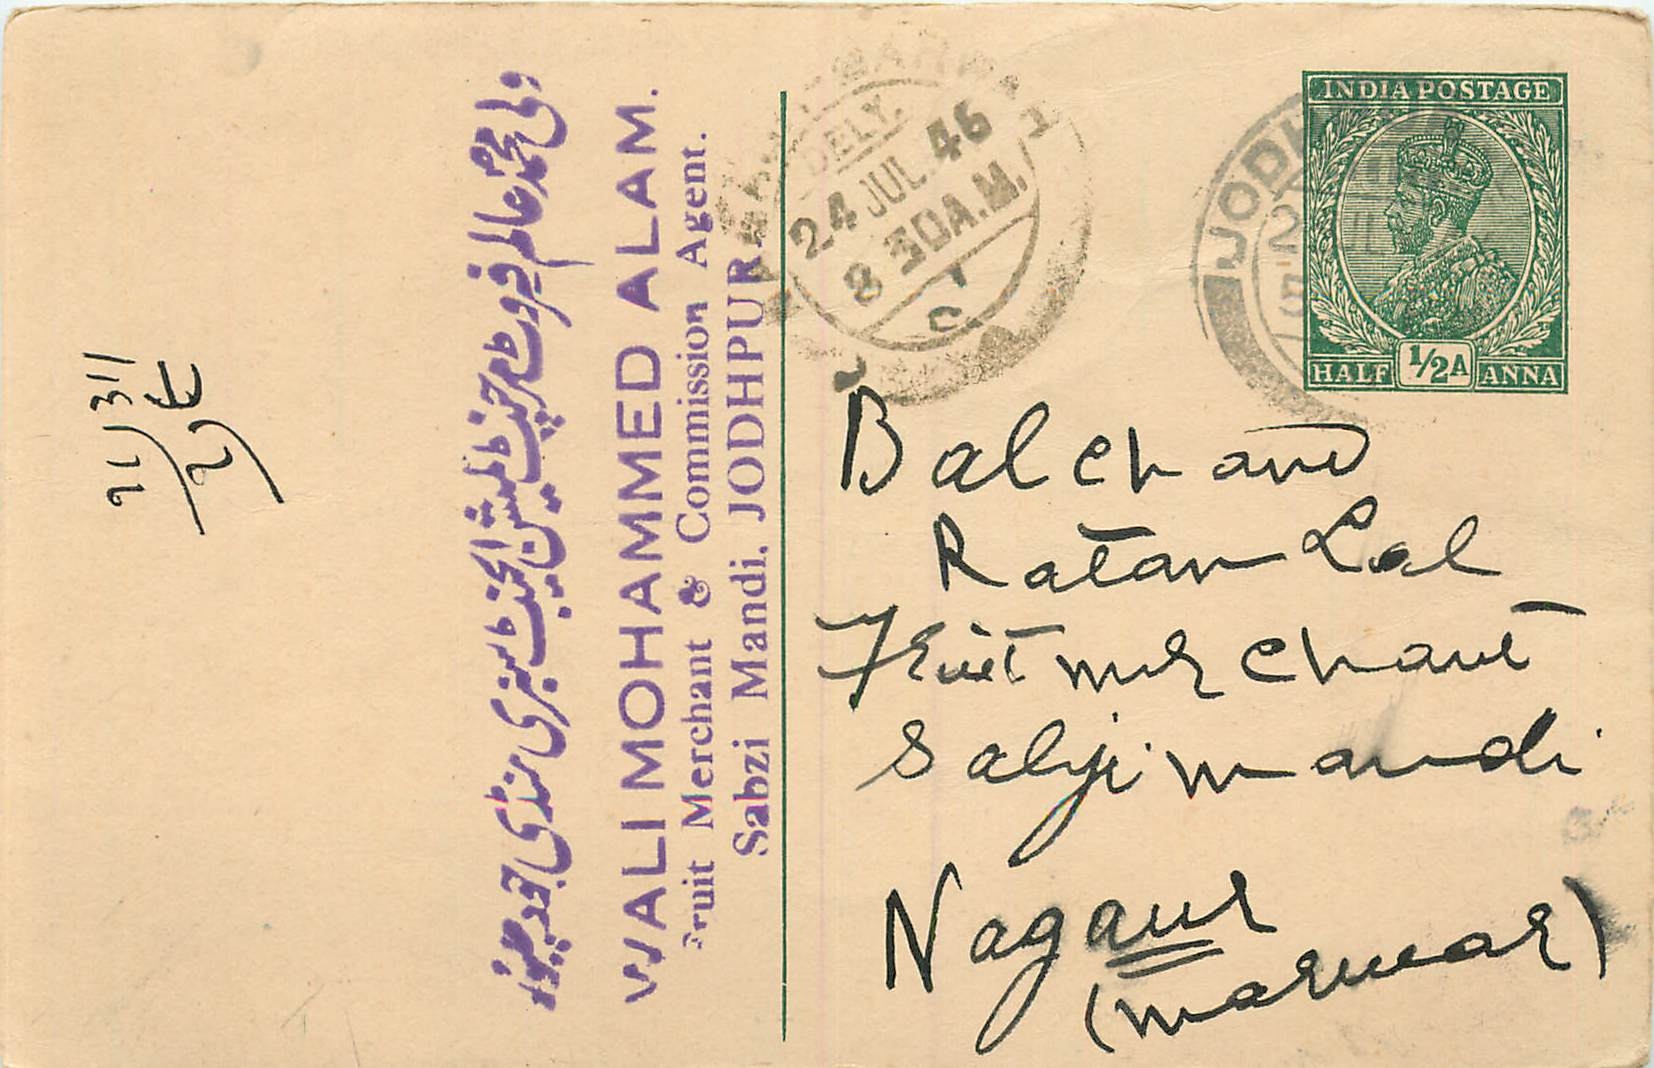 ولی محمد عالم فروٹ مرچنٹ کمیشن ایجنٹ سبزی منڈی جودہپور
WALI MOHAMMED ALAM.
Fruit Merchant & Commission Agent.
Sabzi Mandi, JODHPUR
DELY.
24 JUL. 46
8 30 A.M.
JODH
INDIA POSTAGE
HALF ½A ANNA
Balchand
Ratan Lal
Fruit merchant
Sabji mandi
Nagaur
(marwar)